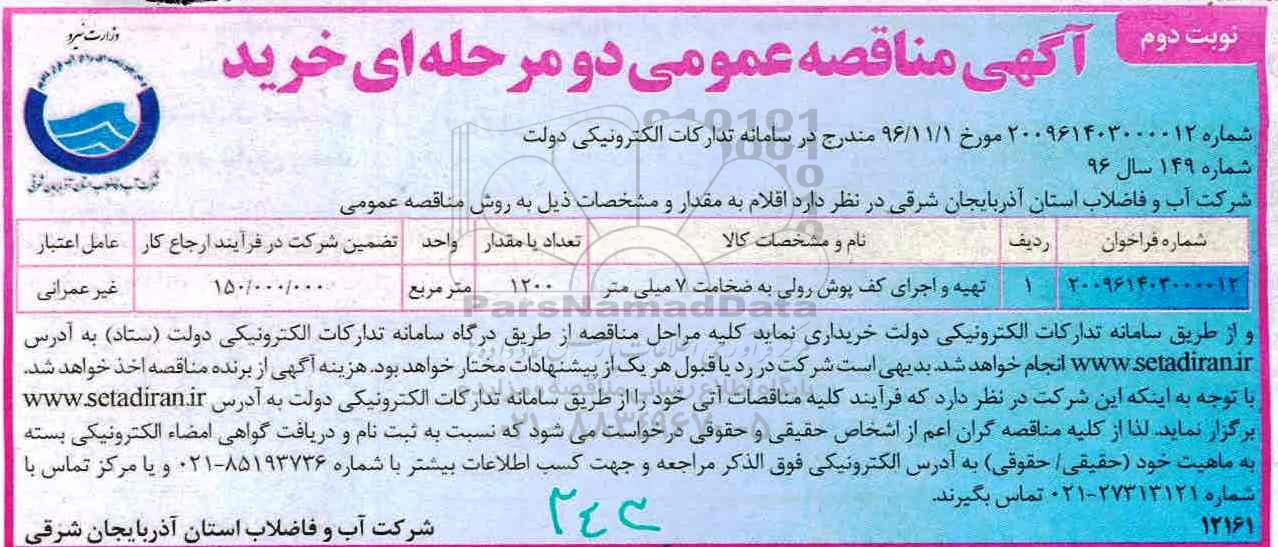 نوبت دوم
آگهی مناقصه عمومی دو مرحله ای خرید
وزارت نیرو
شرکت آب و فاضلاب استان آذربایجان شرقی
شماره ۲۰۰۹۶۱۴۰۳۰۰۰۰۱۲ مورخ ۹۶/۱۱/۱ مندرج در سامانه تدارکات الکترونیکی دولت
شماره ۱۴۹ سال ۹۶
شرکت آب و فاضلاب استان آذربایجان شرقی در نظر دارد اقلام به مقدار و مشخصات ذیل به روش مناقصه عمومی
شماره فراخوان ردیف نام و مشخصات کالا تعداد یا مقدار واحد تضمین شرکت در فرآیند ارجاع کار عامل اعتبار
۲۰۰۹۶۱۴۰۳۰۰۰۰۱۲ ۱ تهیه و اجرای کف پوش رولی به ضخامت ۷ میلی متر ۱۲۰۰ متر مربع ۱۵۰/۰۰۰/۰۰۰ غیر عمرانی
ParsNamadData
و از طریق سامانه تدارکات الکترونیکی دولت خریداری نماید کلیه مراحل مناقصه از طریق درگاه سامانه تدارکات الکترونیکی دولت (ستاد) به آدرس
www.setadiran.ir انجام خواهد شد. بدیهی است شرکت در رد یا قبول هر یک از پیشنهادات مختار خواهد بود. هزینه آگهی از برنده مناقصه اخذ خواهد شد.
با توجه به اینکه این شرکت در نظر دارد که فرآیند کلیه مناقصات آتی خود را از طریق سامانه تدارکات الکترونیکی دولت به آدرس www.setadiran.ir
برگزار نماید. لذا از کلیه مناقصه گران اعم از اشخاص حقیقی و حقوقی درخواست می شود که نسبت به ثبت نام و دریافت گواهی امضاء الکترونیکی بسته
به ماهیت خود (حقیقی/ حقوقی) به آدرس الکترونیکی فوق الذکر مراجعه و جهت کسب اطلاعات بیشتر با شماره ۸۵۱۹۳۷۳۶-۰۲۱ و یا مرکز تماس با
شماره ۲۷۳۱۳۱۲۱-۰۲۱ تماس بگیرند.
۱۲۱۶۱
شرکت آب و فاضلاب استان آذربایجان شرقی